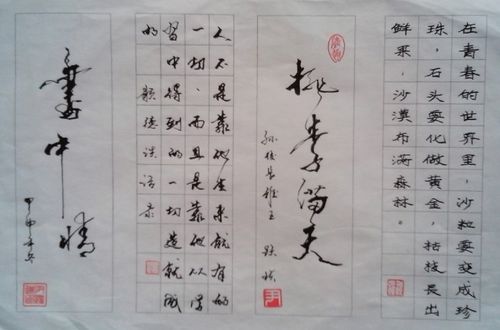 在青春的世界里，沙粒要变成珍
珠，石头要化做黄金，枯枝长出
鲜果，沙漠布满森林。
桃李满天
孙校长雅正
人不是靠他生来就有的
一切，而且是靠他从学
习中得到的一切造就成
的 歌德谈话录
中情
甲申年